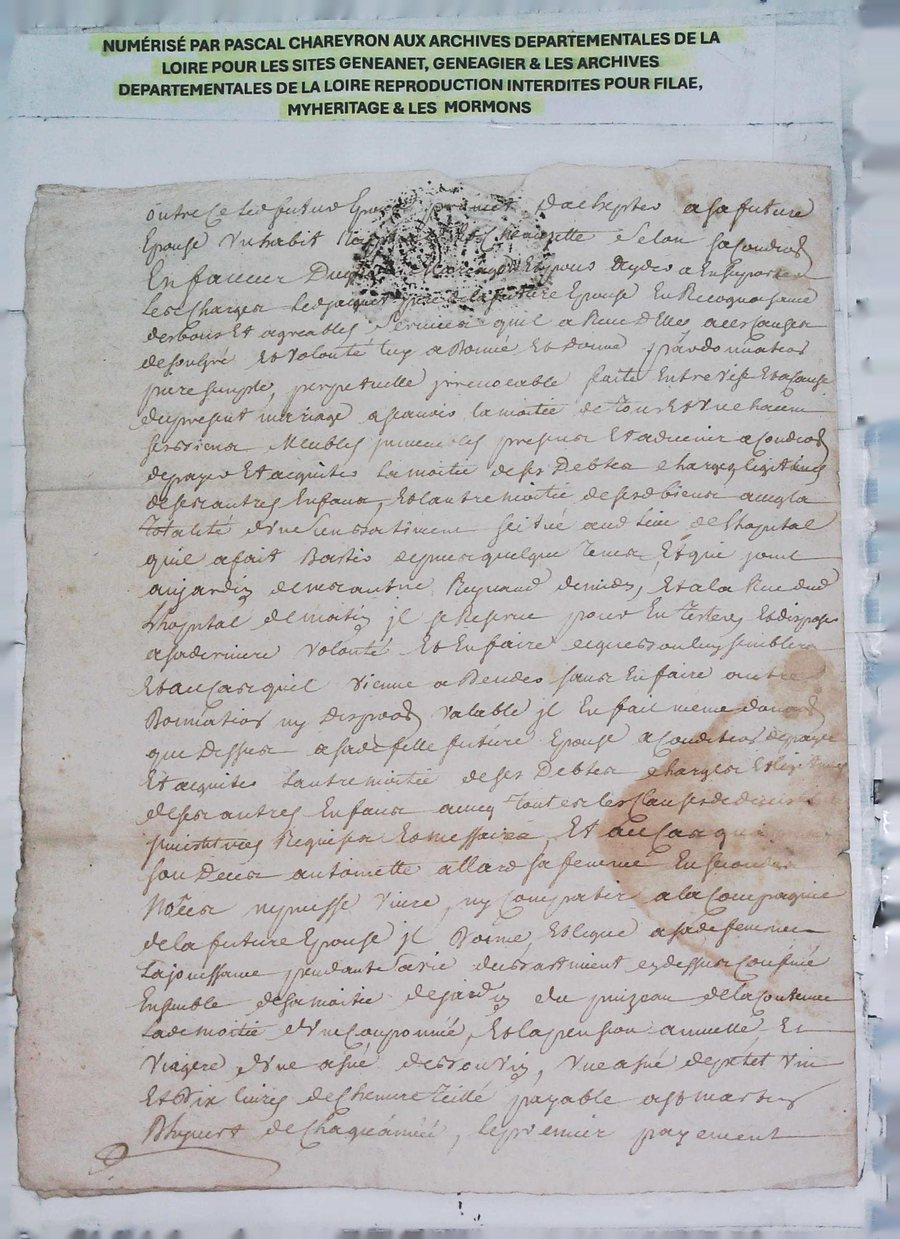 NUMÉRISÉ PAR PASCAL CHAREYRON AUX ARCHIVES DEPARTEMENTALES DE LA
LOIRE POUR LES SITES GENEANET, GENEAGIER & LES ARCHIVES
DEPARTEMENTALES DE LA LOIRE REPRODUCTION INTERDITES POUR FILAE,
MYHERITAGE & LES MORMONS
outre ce led futur Epoux promet dachepter a sa future
Epouse un habit selon sa condion
En faveur Duq mariage Et pour ayder a En suporter
les Charges led jacques pere de la future Epouse En Recognoissance
des bons Et agreables Services quil a Receu Delle, a ces Causes
de son gré Et volonté luy a Donné Et donne par donnation
pure simple, perpetuelle jrrevocable faite Entre vifs Et a Cause
du present mariage a scavoir la moitié de tous Et un chacun
ses biens Meubles jmmeubles presens Et advenir a Condion
de payer Et acquiter la moitié de ses Debtes charges legitimes
de ses autres Enfans, Et lautre moitié de ses d biens avec la
totalité dune bastiment scitué au de lhopital
quil a fait Bastir depuis quelque tems, Et qui joint
au jardin de Reynaud de midy, Et a la Rue dud
Lhopital de matin jl se Reserve pour En tester, Et disposer
a sa derniere volonté Et En faire ce que bon luy semblera
Et au Cas quil vienne a Deceder sans En faire autre
Donnation ny dispoon valable jl En fait même donaon
que Dessus a sa de fille future Epouse a Condition de payer
Et acquiter lautre moitié de ses Debtes charges Et legitimes
de ses autres Enfans avec toutes les Clauses de droit
Requises Et necessaires, Et au Cas qu
son Deces antoinette allard sa femme En secondes
Noces ny puisse vivre, ny Compatir a la Compagnie
de la future Epouse jl Donne, Et legue a sa de femme
La jouissance pendant sa vie du bastiment cy dessus Confiné
Ensemble de sa moitié de jardin du puizeau de la Contenue
La de moitié dune Couponnée, Et la pension annuelle Et
viagere dune anée de bon vin, une anée de petit vin
Et Dix livres de chenvre teillé payable a st martin
Dhyvert de Chaque année, le premier payement